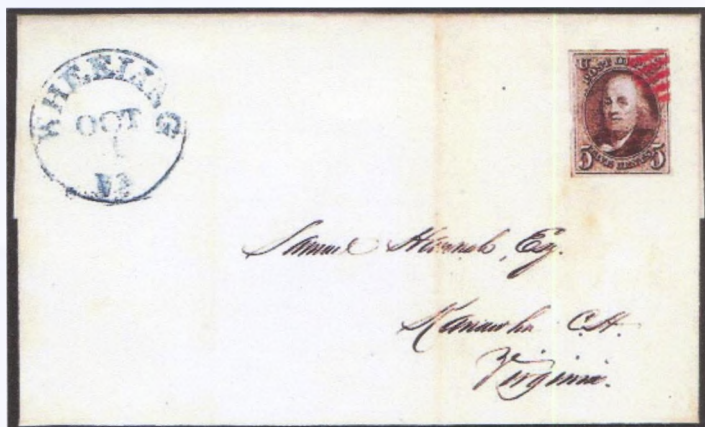 WHEELING
OCT
1
Va
POST OFFICE
5 5
FIVE CENTS
Samuel Hannah, Esq.
Kanawha C.H.
Virginia.